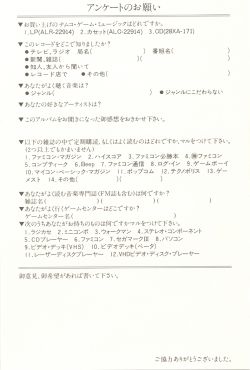 アンケートのお願い
▼お買い上げのナムコ・ゲーム・ミュージックはどれですか。
1.LP(ALR-22904) 2.カセット(ALC-22904) 3.CD(28XA-171)
▼このレコードをどこで知りましたか?
●テレビ,ラジオ 局名( ) 番組名( )
●新聞,雑誌( )( )
●知人,友人から聞いて
●レコード店で ●その他( )
▼あなたがよく聴く音楽は?
●ジャンル( ) ●ジャンルにこだわらない
▼あなたの好きなアーティストは?
▼このアルバムをお聞きになった御感想をおきかせ下さい。
▼以下の雑誌の中で定期購読誌、もしくはよく読むものはどれですか,マルをつけて下さい。
(2つ以上でもかまいません)
1.ファミコン・マガジン 2.ハイスコア 3.ファミコン必勝本 4.㊙ファミコン
5.コンプティーク 6.Beep 7.ファミコン通信 8.ログイン 9.ゲームボーイ
10.マイコン・ベーシック・マガジン 11.ポップコム 12.テクノポリス 13.ゲー
メスト 14.その他( )( )
▼あなたがよく読む音楽専門誌(FM誌も含む)は何ですか?
雑誌名( )( )
▼あなたがよく行くゲームセンターはどこですか?
ゲームセンター名( )
▼次のうちあなたがお持ちのものは何ですかマルをつけて下さい。
1.ラジカセ 2.ミニコンポ 3.ウォークマン 4.ステレオ・コンポーネント
5.CDプレーヤー 6.ファミコン 7.セガマークⅢ 8.パソコン
9.ビデオ・デッキ(VHS) 10.ビデオデッキ(ベータ)
11.レーザーディスクプレーヤー 12.VHDビデオ・ディスク・プレーヤー
御意見、御希望があれば書いて下さい。
ご協力ありがとうございました。